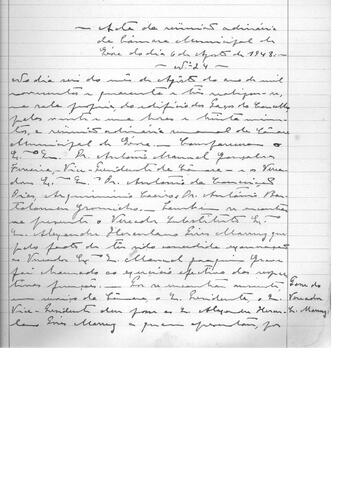 — Acta da reunião ordinária
da Câmara Municipal de
Évora do dia 6 de Agosto de 1943. —
— Nº 24 —
No dia seis do mês de Agôsto do ano de mil
novecentos e quarenta e três realizou-se,
na sala própria do edifício dos Paços do Concelho
pelas vinte e uma horas e trinta minu-
tos, a reunião ordinária semanal da Câmara
Municipal de Évora. — Compareceram o
Ex.mo Sr. Dr. António Manuel Gonçalves
Ferreira, Vice-Presidente da Câmara — e os Verea-
dores Ex.mos Srs. Dr. António da Conceição
Dr. António Bar-
tolomeu Gromicho. — Também se encontra
va presente o Vereador Substituto Ex.mo
Sr. Alexandre Herculano que
pelo facto de ter sido concedida exoneração
ao Vereador Ex.mo Sr. Manuel Joaquim
foi chamado ao exercício efectivo das respe-
ctivas funções. — Por se encontrar ausente
em serviço da Câmara, o Sr. Presidente, o Sr.
Vice-Presidente deu posse ao Sr. Alexandre Hercu-
lano a quem apresentou, por
Posse do
Vereador